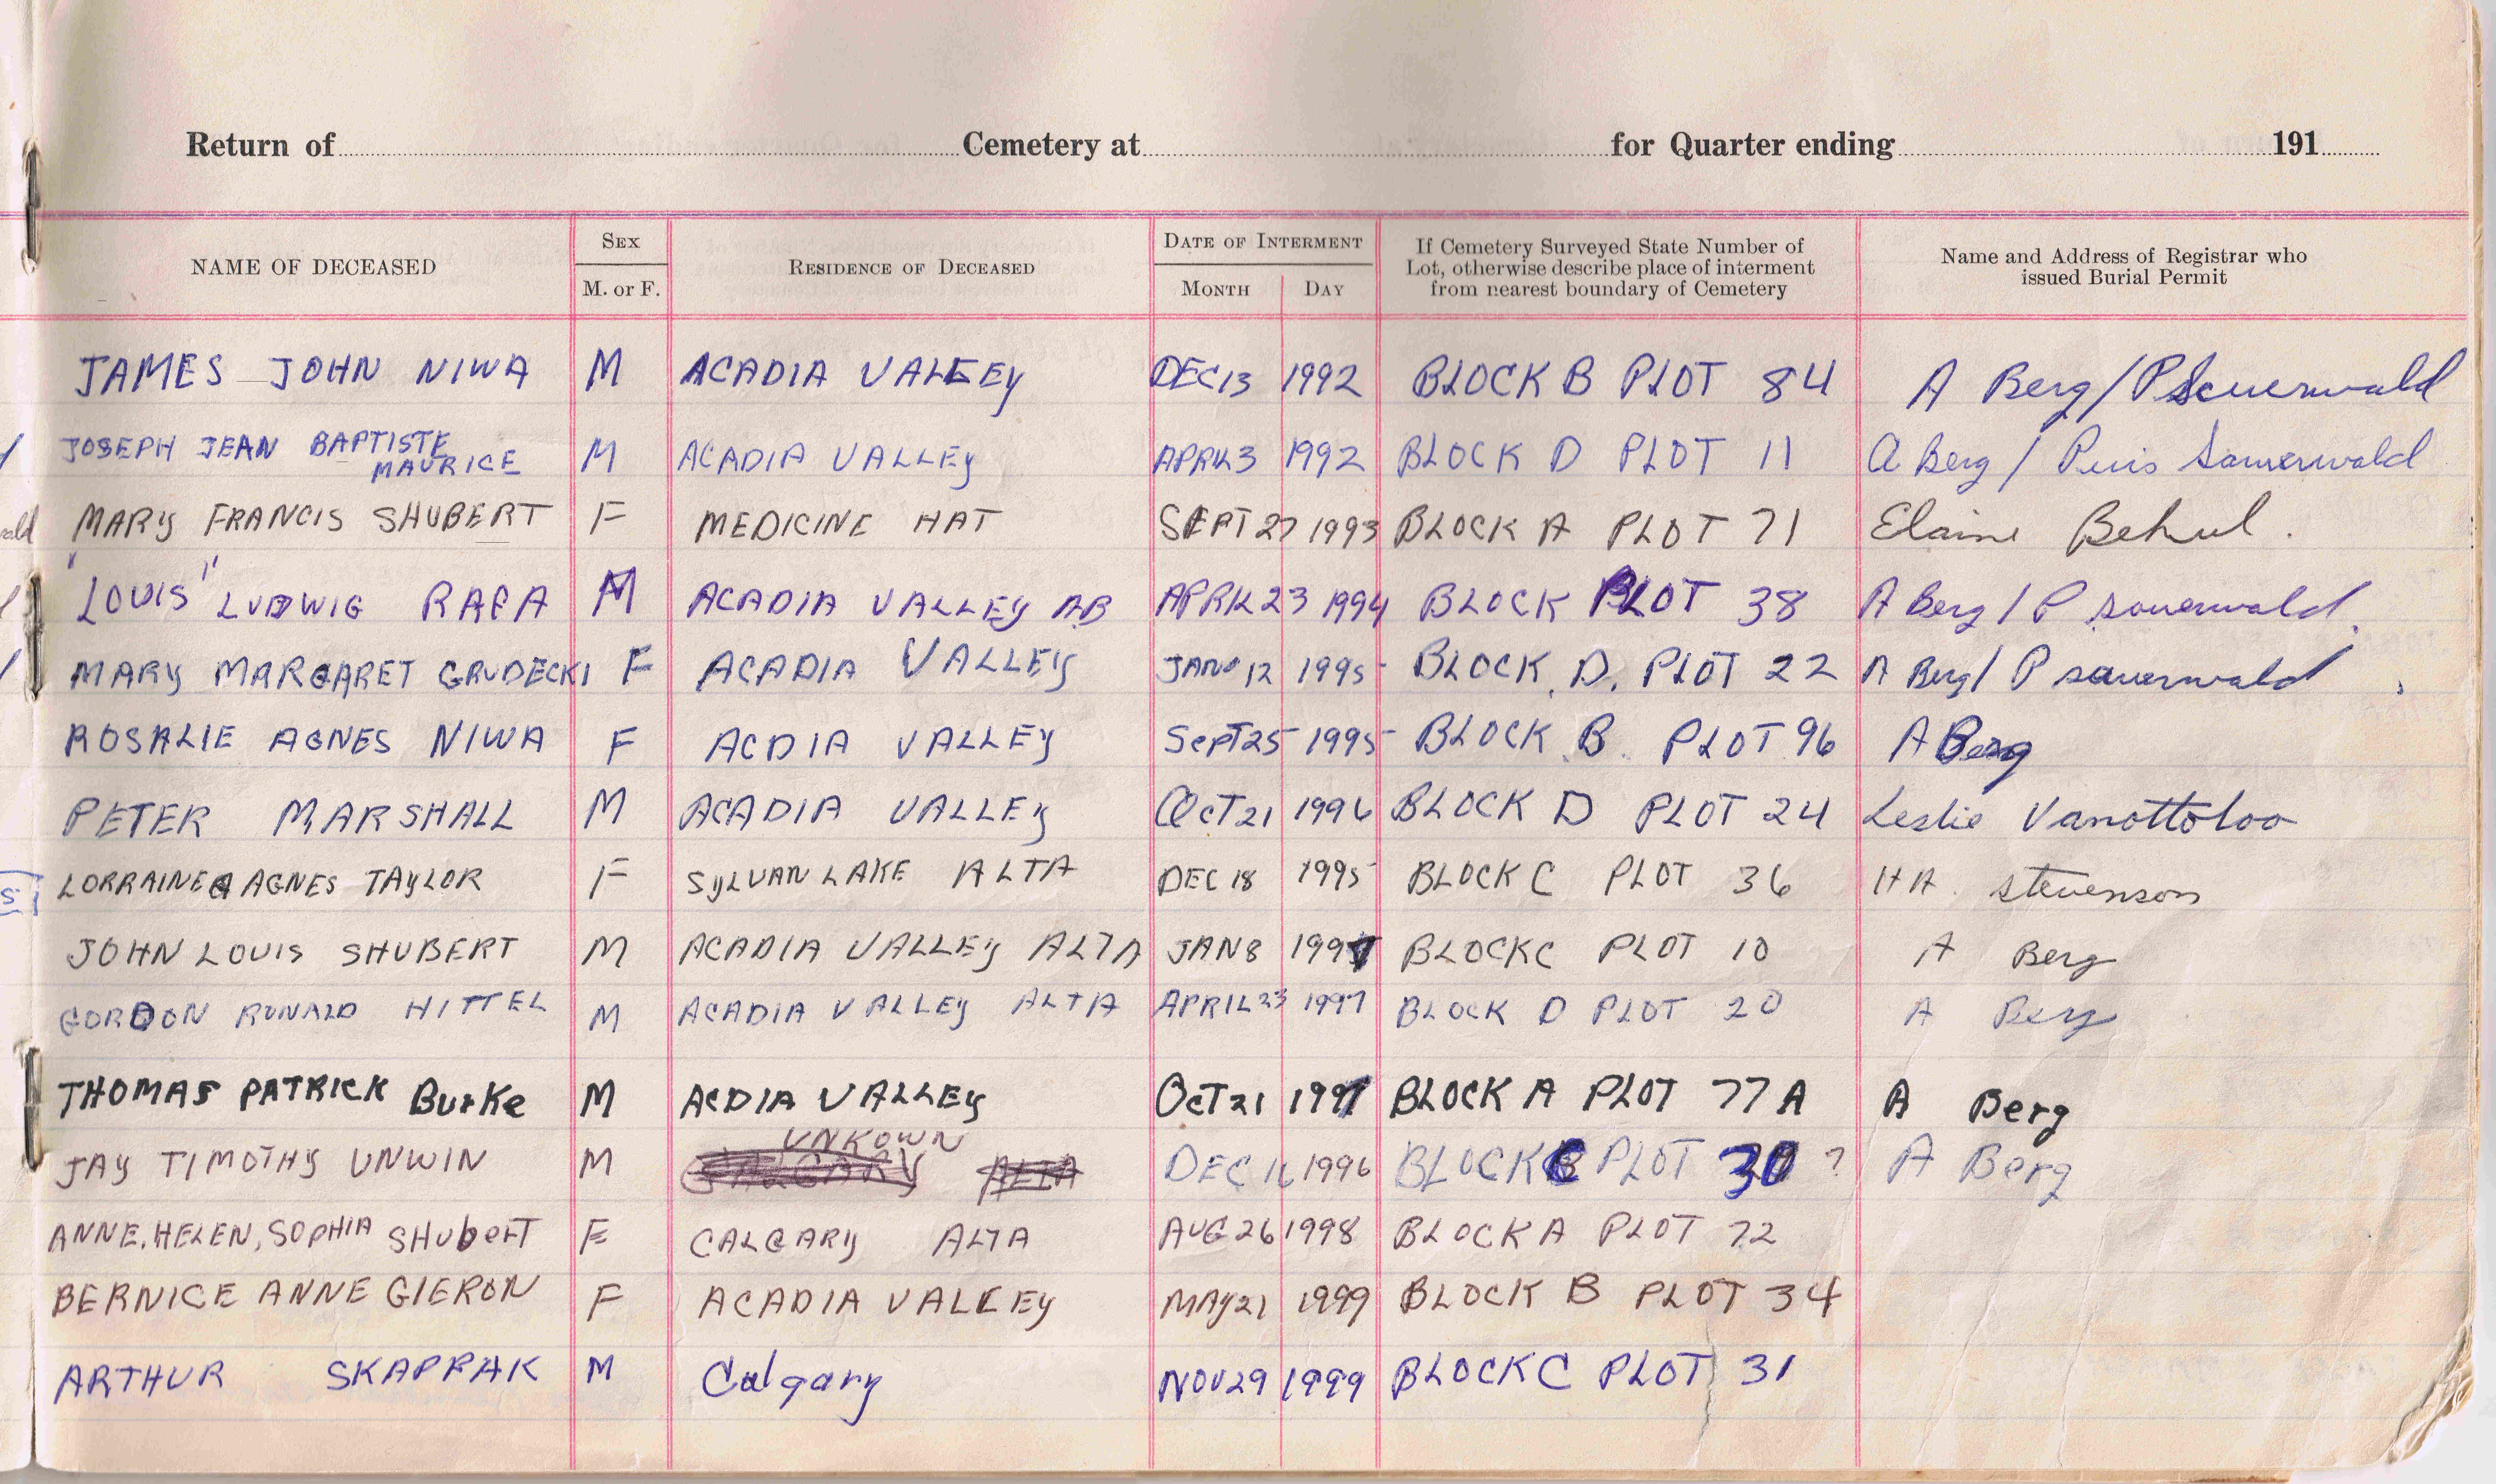 Return of Cemetery at for Quarter ending 191
NAME OF DECEASED
SEX
M. or F.
RESIDENCE OF DECEASED
DATE OF INTERMENT
MONTH DAY
If Cemetery Surveyed State Number of
Lot, otherwise describe place of interment
from nearest boundary of Cemetery
Name and Address of Registrar who
issued Burial Permit
JAMES JOHN NIWA M ACADIA VALLEY DEC 13 1992 BLOCK B PLOT 84 A Berg / P Sauerwald
JOSEPH JEAN BAPTISTE
MAURICE M ACADIA VALLEY APRIL 3 1992 BLOCK D PLOT 11 A Berg / Sauerwald
MARY FRANCIS SHUBERT F MEDICINE HAT SEPT 27 1993 BLOCK A PLOT 71 Elaine Behul.
"LOUIS" LUDWIG RAFA M ACADIA VALLEY AB APRIL 23 1994 BLOCK PLOT 38 A Berg / P Sauerwald.
MARY MARGARET GRUDECKI F ACADIA VALLEY JAN 12 1995 BLOCK D. PLOT 22 A Berg / P Sauerwald
ROSALIE AGNES NIWA F ACDIA VALLEY SepT 25 1995 BLOCK B. PLOT 96 A Berg
PETER MARSHALL M ACADIA VALLEY OCT 21 1996 BLOCK D PLOT 24 Leslie Vanottoloo
LORRAINE AGNES TAYLOR F SYLVAN LAKE ALTA DEC 18 1995 BLOCK C PLOT 36 HA. Stevenson
JOHN LOUIS SHUBERT M ACADIA VALLEY ALTA JAN 8 1997 BLOCK C PLOT 10 A Berg
GORDON RONALD HITTEL M ACADIA VALLEY ALTA APRIL 23 1997 BLOCK D PLOT 20 A Berg
THOMAS PATRICK BurKe M ACDIA VALLEY OcT 21 1997 BLOCK A PLOT 77A A Berg
UNKOWN
JAY TIMOTHY UNWIN M CALGARY ALTA DEC 16 1996 BLOCK C PLOT 30 ? A Berg
ANNE, HELEN, SOPHIA SHubeRT F CALGARY ALTA AUG 26 1998 BLOCK A PLOT 72
BERNICE ANNE GIERON F ACADIA VALLEY MAY 21 1999 BLOCK B PLOT 34
ARTHUR SKAPPAK M Calgary NOV 29 1999 BLOCK C PLOT 31